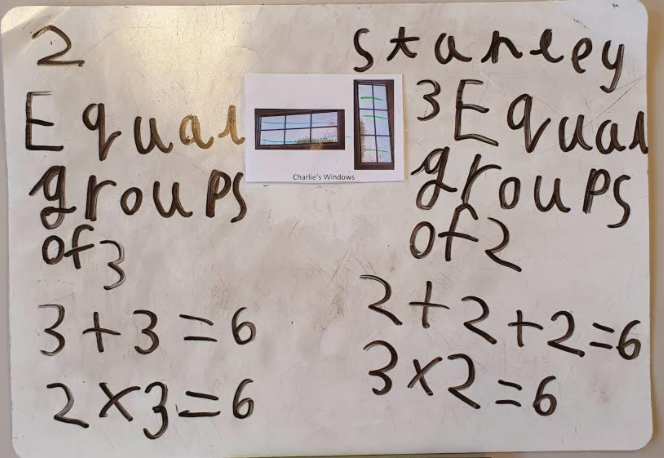 Stanley
2
Equal
groups
of 3
3+3=6
2×3=6
Charlie's Windows
3 Equal
groups
of 2
2+2+2=6
3×2=6